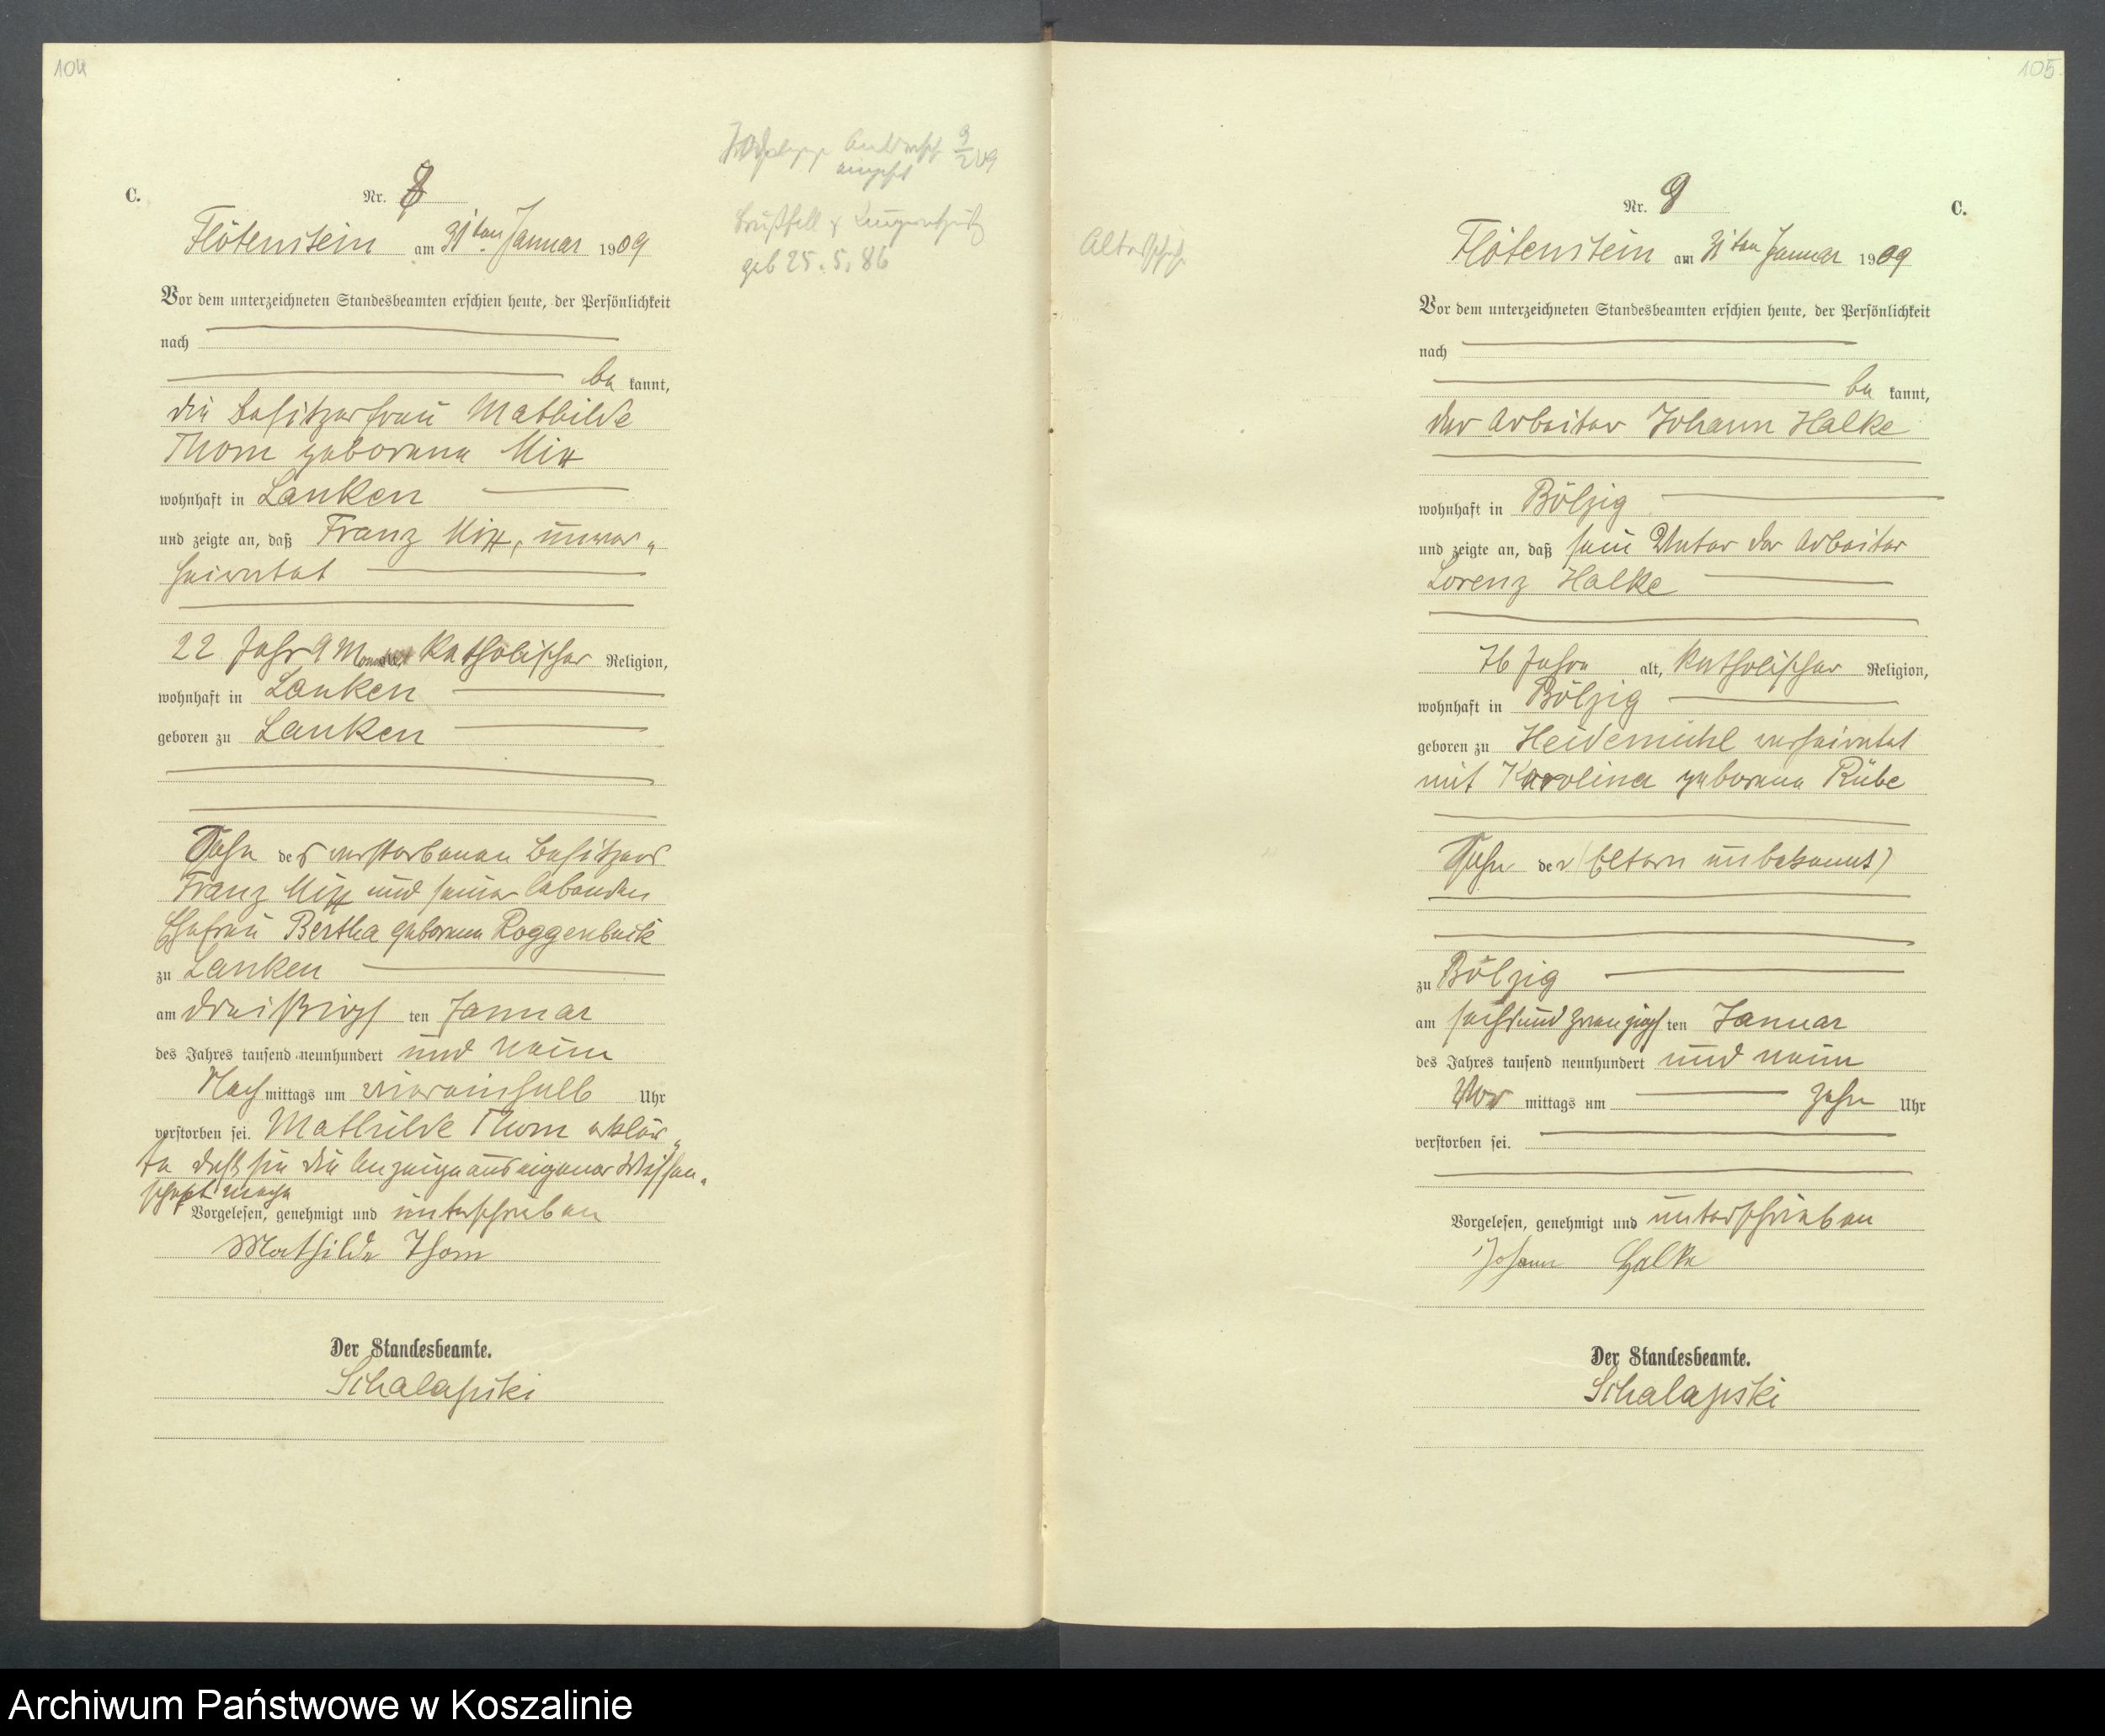 104
C.
Nr. 8
Flötenstein am 31ten Januar 1909
Vor dem unterzeichneten Standesbeamten erschien heute, der Persönlichkeit
nach
be kannt,
die Besitzerfrau Mathilde
Thom geborene Mix
wohnhaft in Lanken
und zeigte an, daß Franz Mix, unver„
heiratet
22 Jahr 9 Monate katholischer Religion,
wohnhaft in Lanken
geboren zu Lanken
Sohn des verstorbenen Besitzers
Franz Mix und seiner lebenden
Ehefrau Bertha geborene Roggenbuck
zu Lanken
am dreißigs ten Januar
des Jahres tausend neunhundert und neun
Nach mittags um viereinhalb Uhr
verstorben sei. Mathilde Thom erklär„
te daß sie die Anzeige aus eigener Wissen„
schaft mache
Vorgelesen, genehmigt und unterschrieben
Mathilde Thom
Der Standesbeamte.
Schalapski
9/2 09
Brustfell &
geb 25.5.86
105.
C.
Altersschwäche
Nr. 9
Flötenstein am 31ten Januar 1909
Vor dem unterzeichneten Standesbeamten erschien heute, der Persönlichkeit
nach
be kannt,
der Arbeiter Johann Halke
wohnhaft in Bölzig
und zeigte an, daß sein Vater der Arbeiter
Lorenz Halke
76 Jahre alt, katholischer Religion,
wohnhaft in Bölzig
geboren zu Heidemühl verheiratet
mit Karolina geborene Rübe
Sohn der (Eltern unbekannt)
zu Bölzig
am sechsundzwanzigs ten Januar
des Jahres tausend neunhundert und neun
Vor mittags um zehn Uhr
verstorben sei.
Vorgelesen, genehmigt und unterschrieben
Johann Halke
Der Standesbeamte.
Schalapski
Archiwum Państwowe w Koszalinie